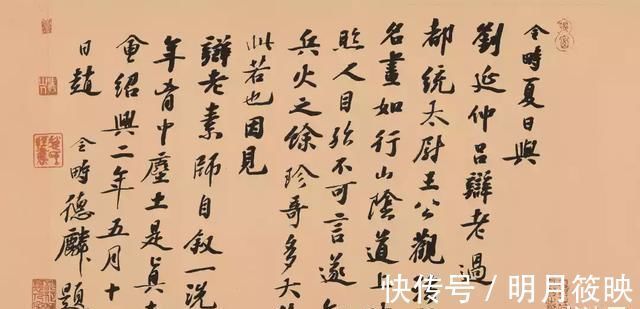 令時夏日與
劉延仲呂辯老過
都統太尉王公觀
名畫如行山陰道上
照人目殆不可言遂
兵火之餘珍哥多大
此若也因見
辯老素師自叙一洗
年胷中塵土是真
會紹興二年五月十
日趙 令時德麟題
快传号 / 明月筱映